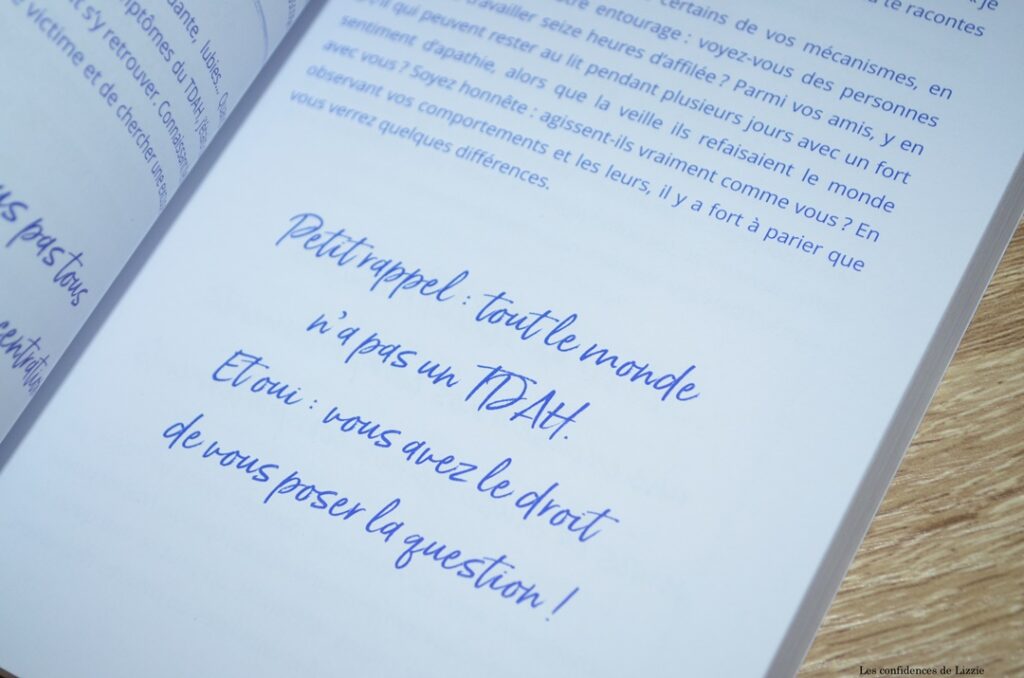 dante, lubies...
mptômes du TDAH,
t s'y retrouver.
victime et de chercher une
us pas tous
te racontes
certains de vos mécanismes, en
entourage : voyez-vous des personnes
travailler seize heures d'affilée ? Parmi vos amis, y en
qui peuvent rester au lit pendant plusieurs jours avec un fort
sentiment d'apathie, alors que la veille ils refaisaient le monde
avec vous ? Soyez honnête : agissent-ils vraiment comme vous ? En
observant vos comportements et les leurs, il y a fort à parier que
vous verrez quelques différences.
Petit rappel : tout le monde
n'a pas un TDAH.
Et oui : vous avez le droit
de vous poser la question !
Les confidences de Lizzie